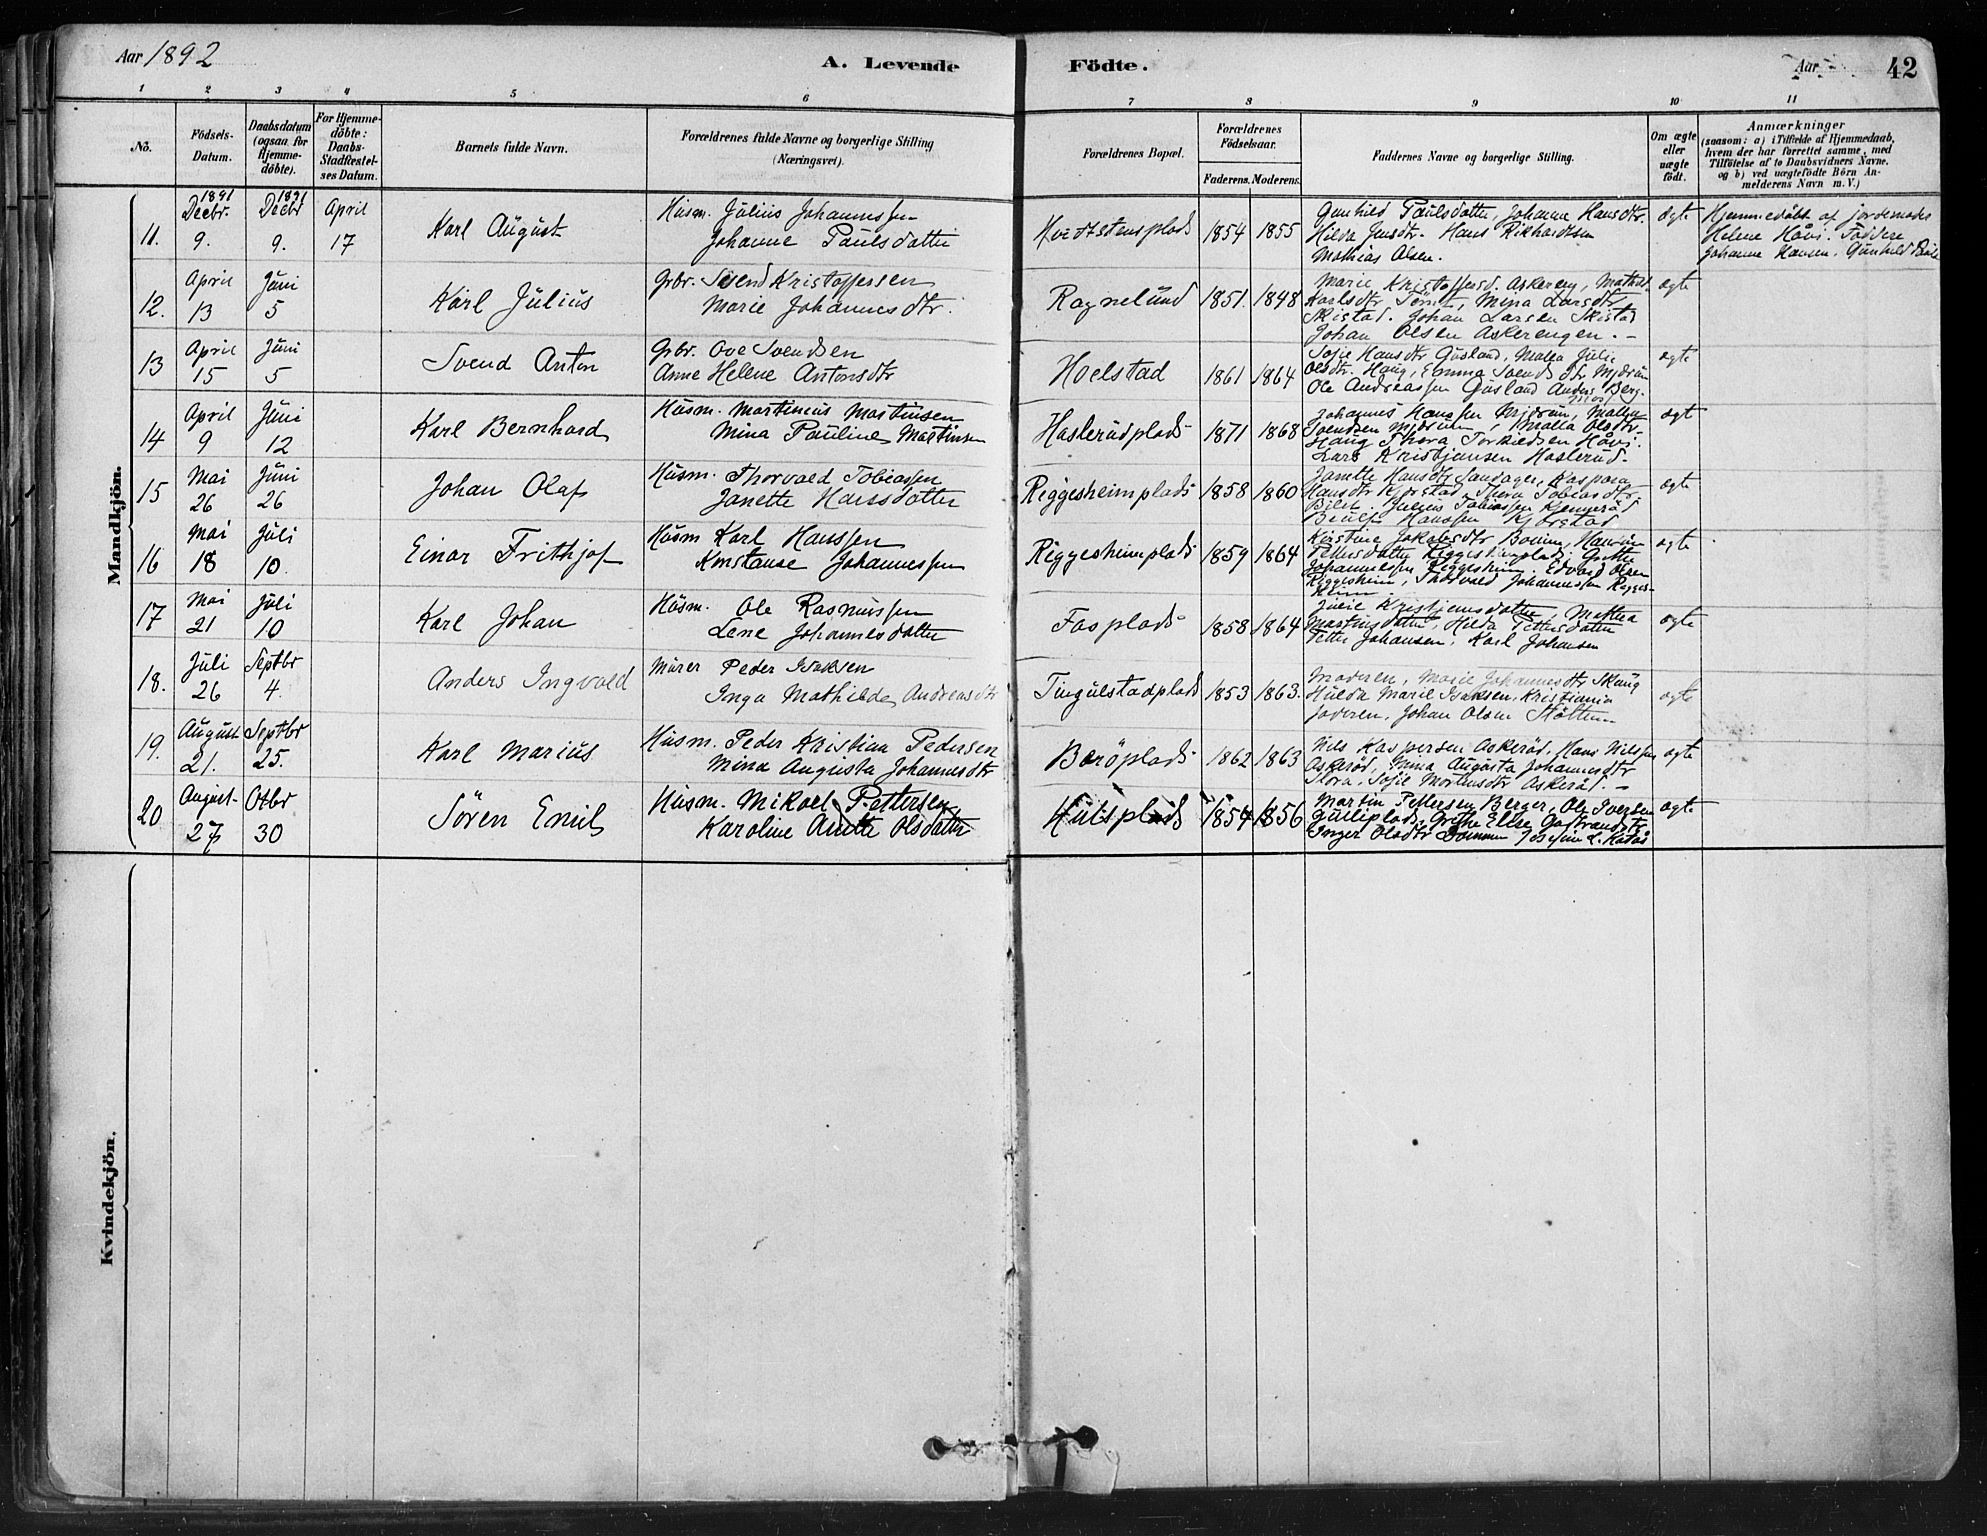 Aar 1892
A. Levende Födte.
Aar 42
1 2 3 4 5 6 7 8 9 10 11
No.
Födsels-Datum.
Daabsdatum (ogsaa for Hjemme-döbte).
For Hjemme-döbte: Daabs-Stadfæstel-ses Datum.
Barnets fulde Navn.
Forældrenes fulde Navne og borgerlige Stilling (Næringsvei).
Forældrenes Bopæl.
Forældrenes Födselsaar.
Faderens. Moderens.
Faddernes Navne og borgerlige Stilling.
Om ægte eller uægte födt.
Anmærkninger
(saasom: a) i Tilfælde af Hjemmedaab,
hvem der har forrettet samme, med
Tilföielse af to Daabsvidners Navne.
og b) ved uægtefödte Börn An-
melderens Navn m. V.)
Mandkjön.
11. 1891 Decbr. 9. 1891 Decbr 9. April 17
Karl August
Husm. Julius Johannessen
Johanne Paulsdatter
Hvidtstensplads 1854 1855
Gunhild Paulsdatter, Johanne Hansdtr.
Hilda Jensdtr. Hans Rikhardsen
Mathias Olsen.
ægte
Hjemmedöbt af jordemoder
Helene Håvi. Faddere
Johanne Hansen, Gunhild Pauls
12. April 13 Juni 5
Karl Julius
Gbr. Svend Kristoffersen
Marie Johannesdtr.
Ragnelund 1851. 1848
Marie Kristoffersd. Askereng, Mathil.
Karlsdtr Tömt, Mina Larsdtr
Skistad. Johan Larsen Skistad
Johan Olsen Askerengen. -
ægte
13 April 15 Juni 5
Svend Anton
Gbr. Ove Svendsen
Anne Helene Antonsdtr
Hoelstad 1861 1864
Sofie Hansdtr Gusland, Malla Julie
Olsdtr. Haug, Emma Svendsdtr. Mjörum
Ole Andreassen Gusland Anders Berg.
ægte
14 April 9 Juni 12
Karl Bernhard
Husm. Martinius Martinsen
Mina Pauline Martinsen
Haslerudplads 1871 1868
Johannes Hanssen Mjörum, Mallla
Svendsen Mjörum, Malla Olsdtr.
Haug Thora Torkildsen Håvi.
Lars Kristjansen Haslerud.
ægt
15 Mai 26 Juni 26
Johan Olaf
Husm. Thorvald Tobiassen
Janette Hansdatter
Riggesheimplads 1858 1860
Janette Hansdtr Sandager, Kaspara
Hansdtr Kjörstad, Thora Tobiasdtr
Julius Tobiassen
Hanssen Kjörstad
ægte
16 Mai 18 Juli 10.
Einar Frithjof
Husm Karl Hanssen
Konstanse Johannessen
Riggesheimplads 1859 1864
Kirstine Jakobsdtr
Pettersdatter Riggesheimplads.
Johannessen Riggesheim. Edvard Olsen
Riggesheim, Thorvald Johannessen Rigges-
heim.
ægte
17 Mai 21 Juli 10
Karl Johan
Husm. Ole Rasmussen
Lene Johannesdatter
Fosplads 1858 1864
Julie Kristjansdatter, Mathea
Martinsdatter, Hilda Pettersdatter
Petter Johansen, Karl Johansen
ægte
18. Juli 26 Septbr 4.
Anders Ingvald
Murer Peder Isaksen
Inga Mathilde Andreasdtr
Tingulstadplads 1853 1863.
Moderen, Marie Johannesdtr Skaug
Hilda Marie Isaksen, Kristiania
Faderen, Johan Olsen Stötten
ægte
19. August 21. Septbr 25.
Karl Marius
Husm. Peder Kristian Pedersen
Mina Augusta Johannesdtr
Boröplads 1862 1863
Nils Kaspersen Askeröd, Hans Nilssen
Askeröd, Mina Augusta Johannesdtr
Flora. Sofie Mortensdtr Askeröd. -
ægte
20 August. 27 Otbr 30
Sören Emil
Husm. Mikael Pettersen
Karoline Anette Olsdatter
Hulsplads 1854 1856
Martin Pettersen Berger, Ole Iversen
Gulliplads. Grethe Elise
Inger Olsdtr Josefine L.
ægte
Kvindekjön.